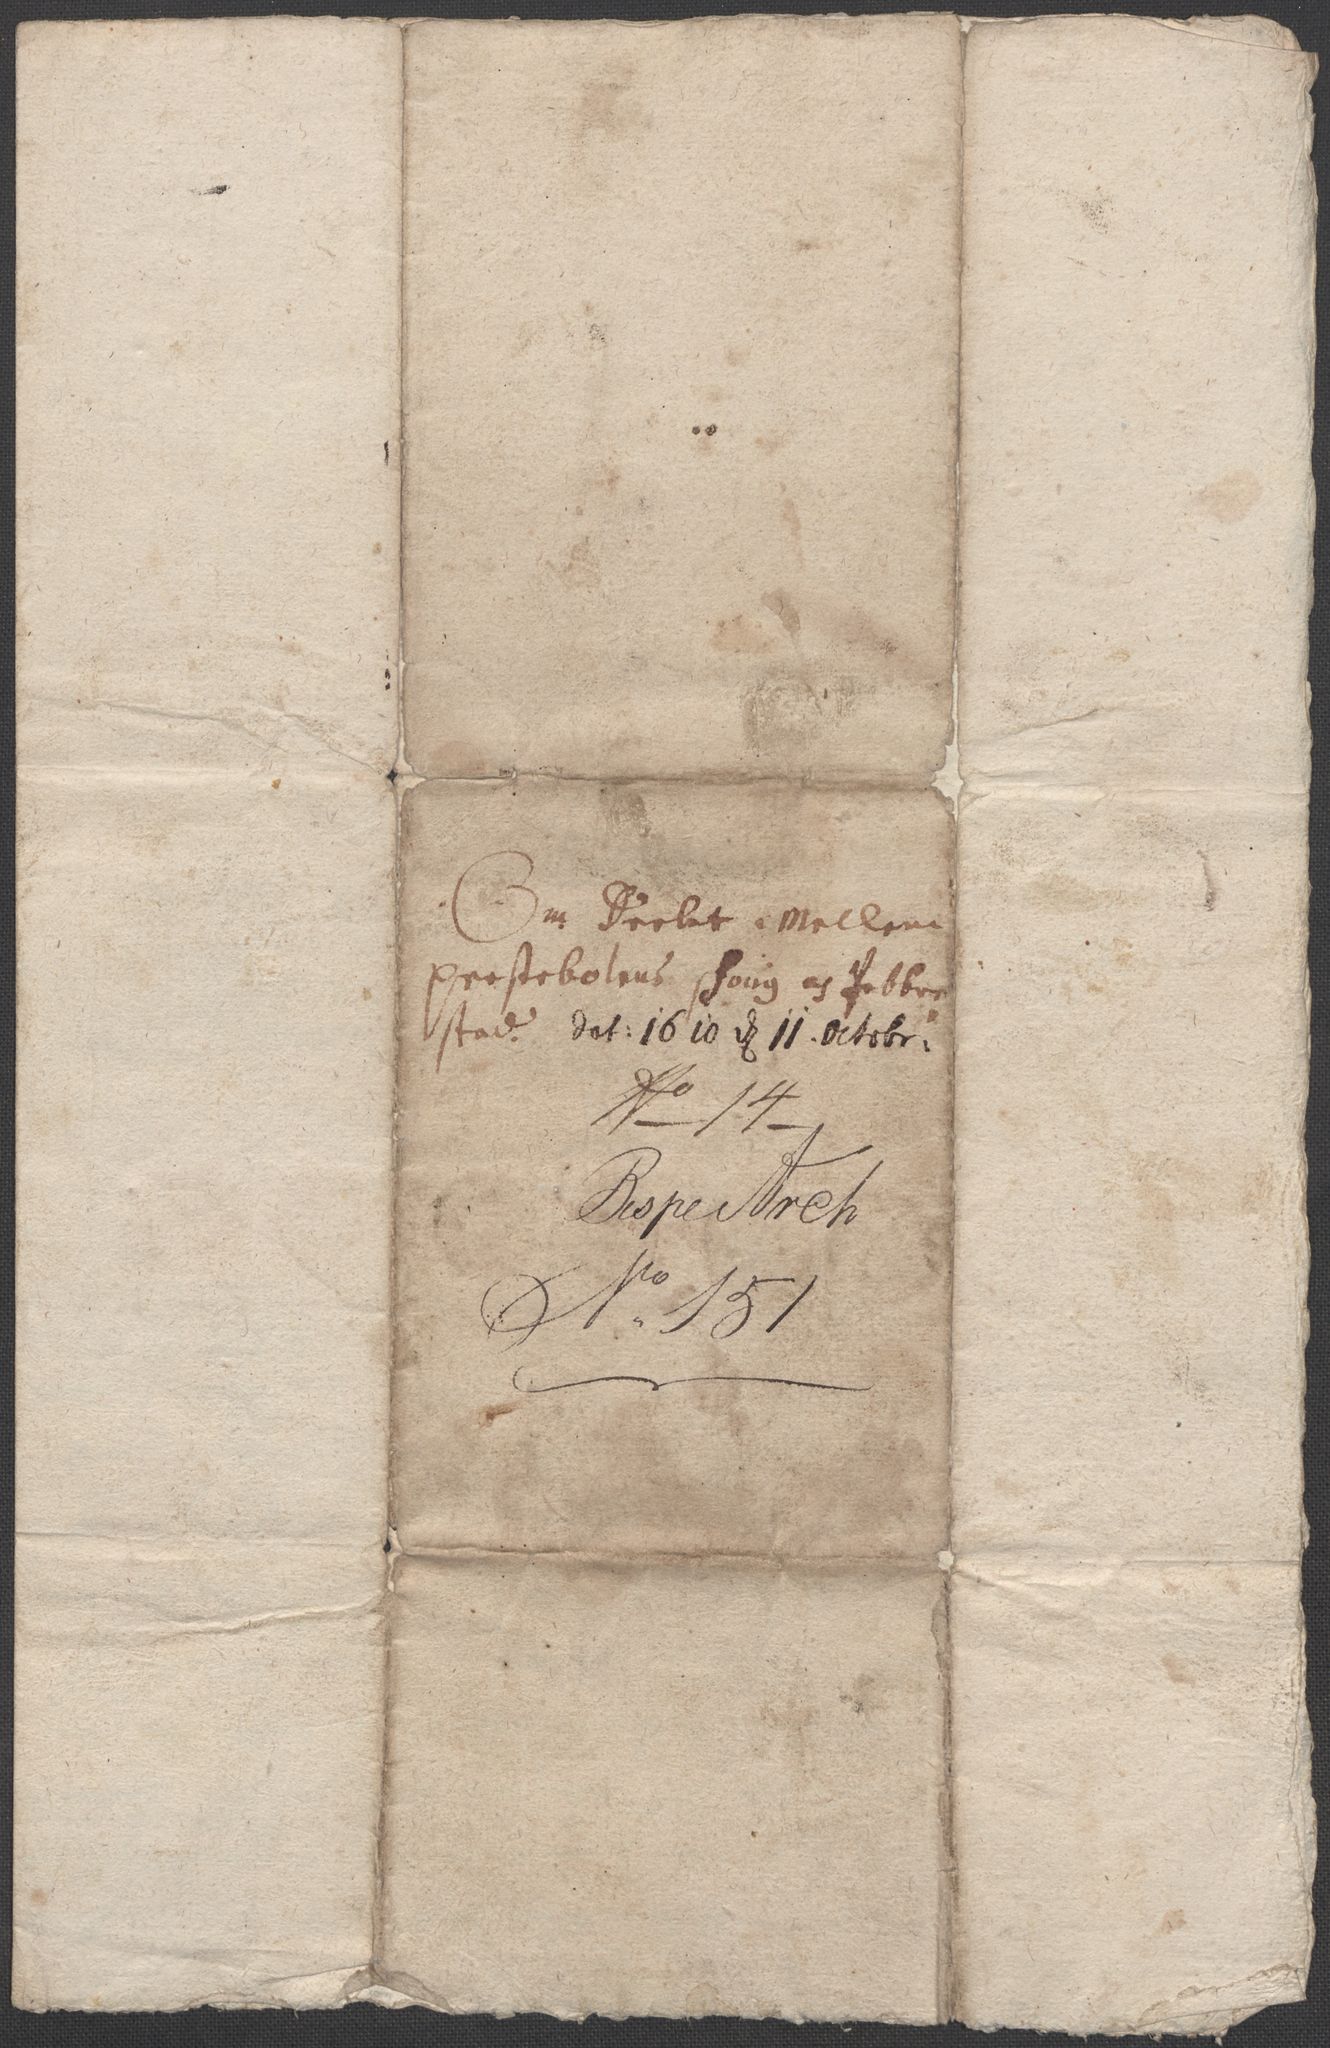 Om Deelet Mellem
prestebolens skoug og Jebber
stad. dat: 1610 11. Octobr:
No 14
Bispe Arch
No. 151